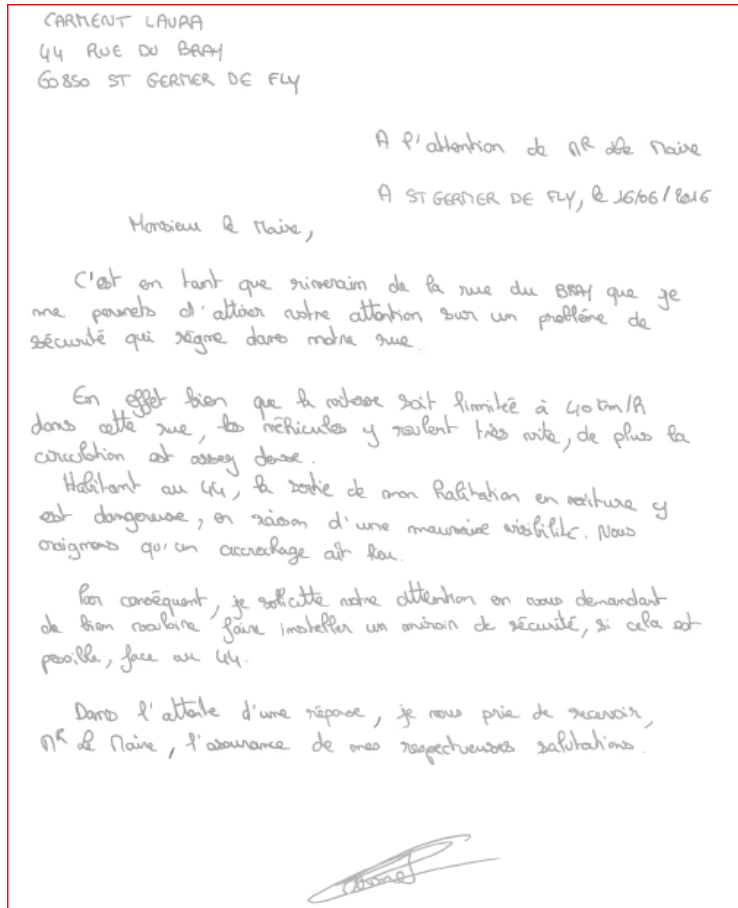 CARMENT LAURA
44 RUE DU BRAY
60850 ST GERMER DE FLY
A l'attention de MR Le Maire
A ST GERMER DE FLY, le 16/06/2016
Monsieur le Maire,
C'est en tant que riverain de la rue du BRAY que je
me permets d'attirer votre attention sur un problème de
sécurité qui règne dans notre rue.
En effet bien que la vitesse soit limitée à 40 km/h
dans cette rue, les véhicules y roulent très vite, de plus la
circulation est assez dense.
Habitant au 44, la sortie de mon habitation en voiture y
est dangereuse, en raison d'une mauvaise visibilité. Nous
craignons qu'un accrochage ait lieu.
Par conséquent, je sollicite votre attention en vous demandant
de bien vouloir faire installer un miroir de sécurité, si cela est
possible, face au 44.
Dans l'attente d'une réponse, je vous prie de recevoir,
MR Le Maire, l'assurance de mes respectueuses salutations.